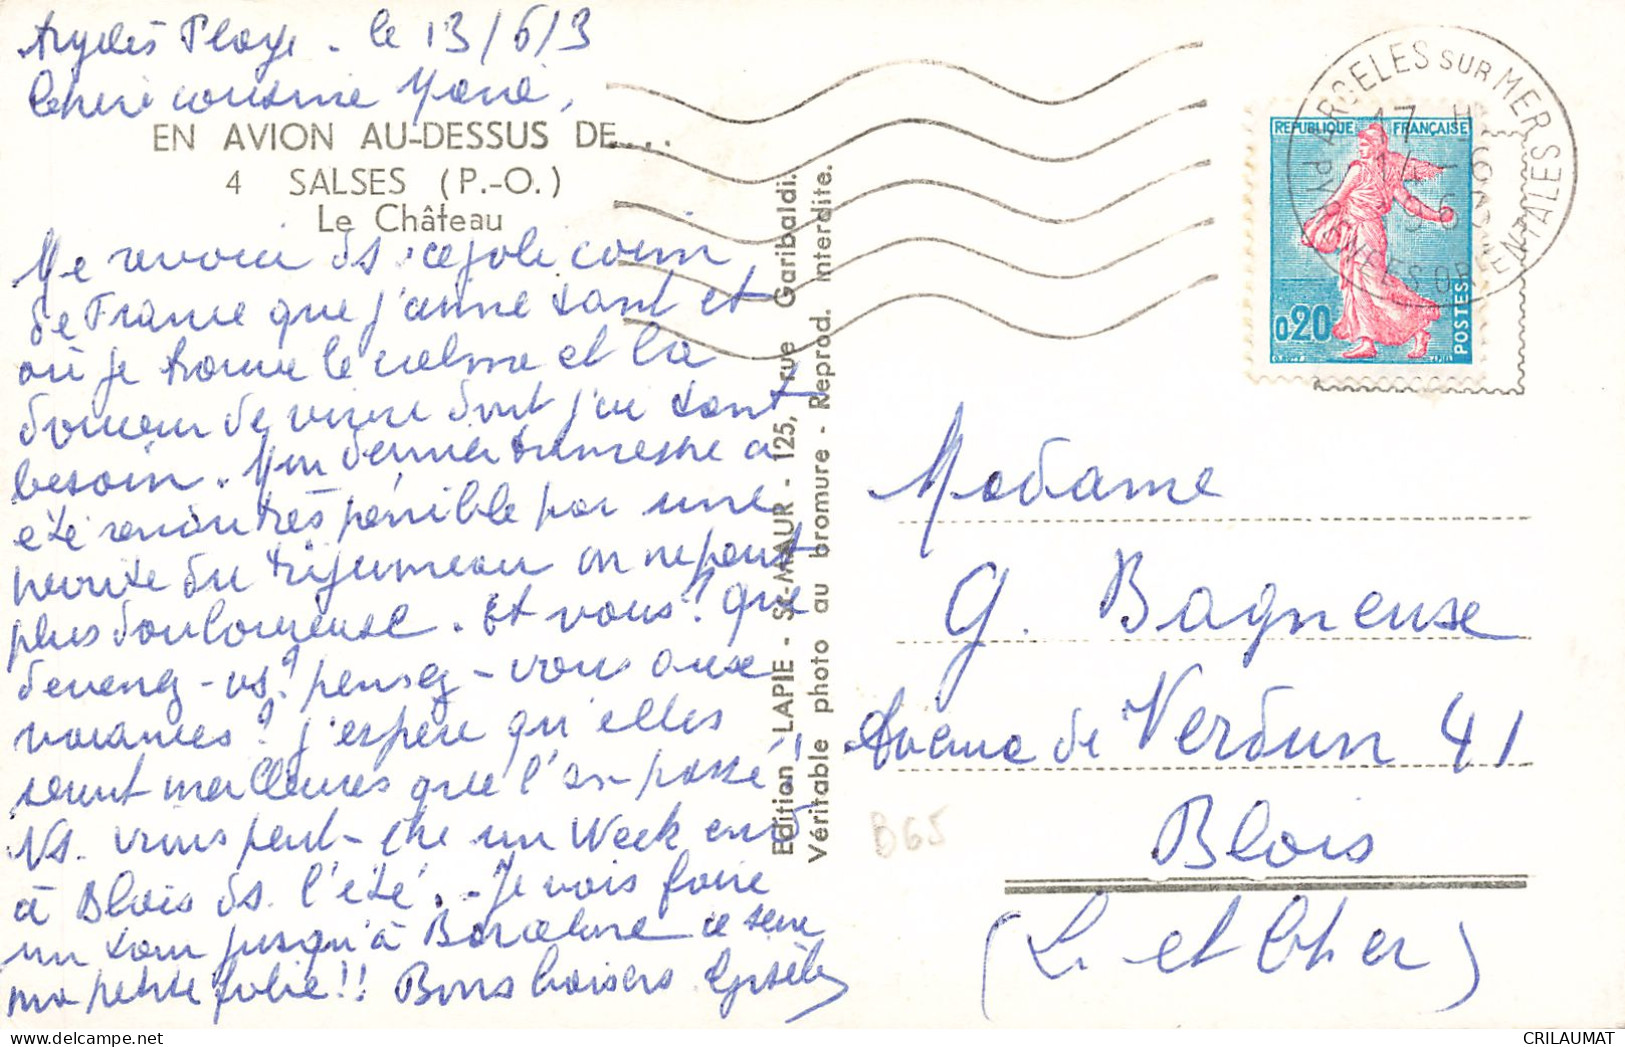 Argelès Plage - le 13/6/3
Chère cousine Yana,
EN AVION AU-DESSUS DE...
4 SALSES (P.-O.)
Le Château
Me revoici ds ce joli coin
de France que j'aime tant et
où je trouve le calme et la
douceur de vivre dont j'ai tant
besoin. Mon dernier trimestre a
été rendu très pénible par une
névrite du trijumeau on ne peut
plus douloureuse. Et vous? Que
devenez-vs? pensez-vous aux
vacances? j'espère qu'elles
seront meilleures que l'an passé!
Vs. peut-être un Week end
à Blois ds l'été. - Je vais faire
un tour jusqu'à Barcelone ce sera
ma petite folie!! Bons baisers
Edition LAPIE - St-MAUR - 125, rue Garibaldi.
Véritable photo au bromure - Reprod. interdite.
REPUBLIQUE FRANÇAISE
0,20
POSTES
ARGELES SUR MER
PYRENEES ORIENTALES
17 H
14 - 6
Madame
G. Bagneuse
Avenue de Verdun 41
Blois
(L. et Cher)
B65
CRILAUMAT